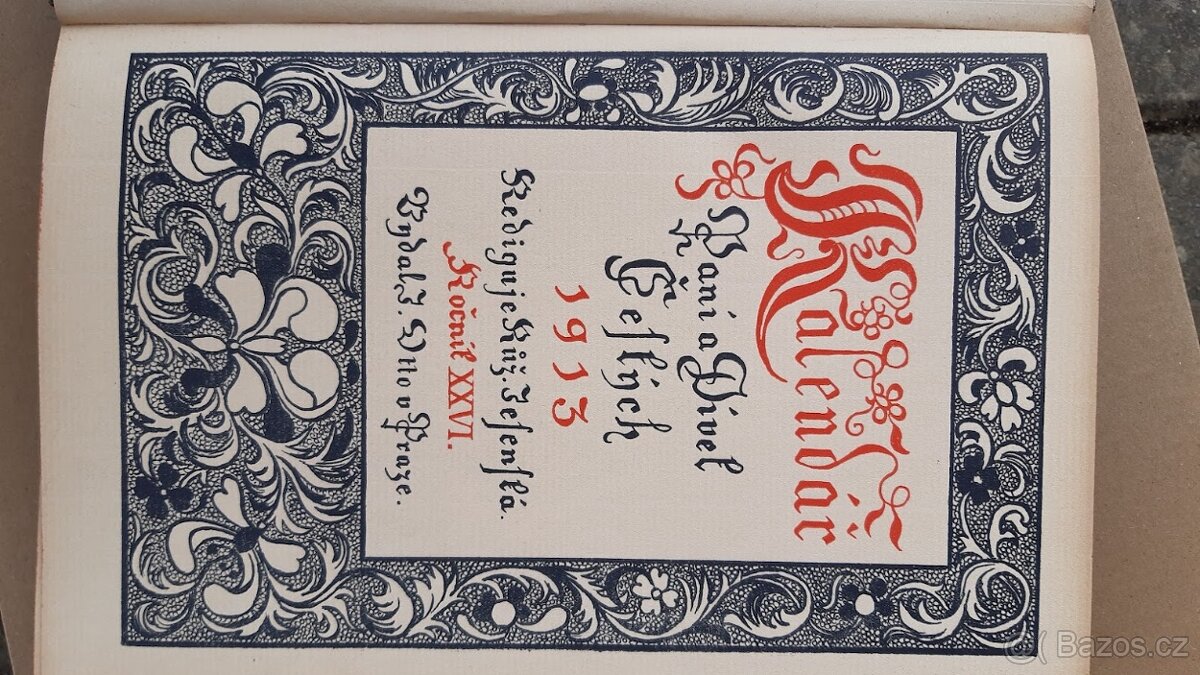 Kalendář
Paní a Dívek
Českých
1913
Rediguje Růž. Jesenská.
Ročník XXVI.
Vydal J. Otto v Praze.
Bazos.cz